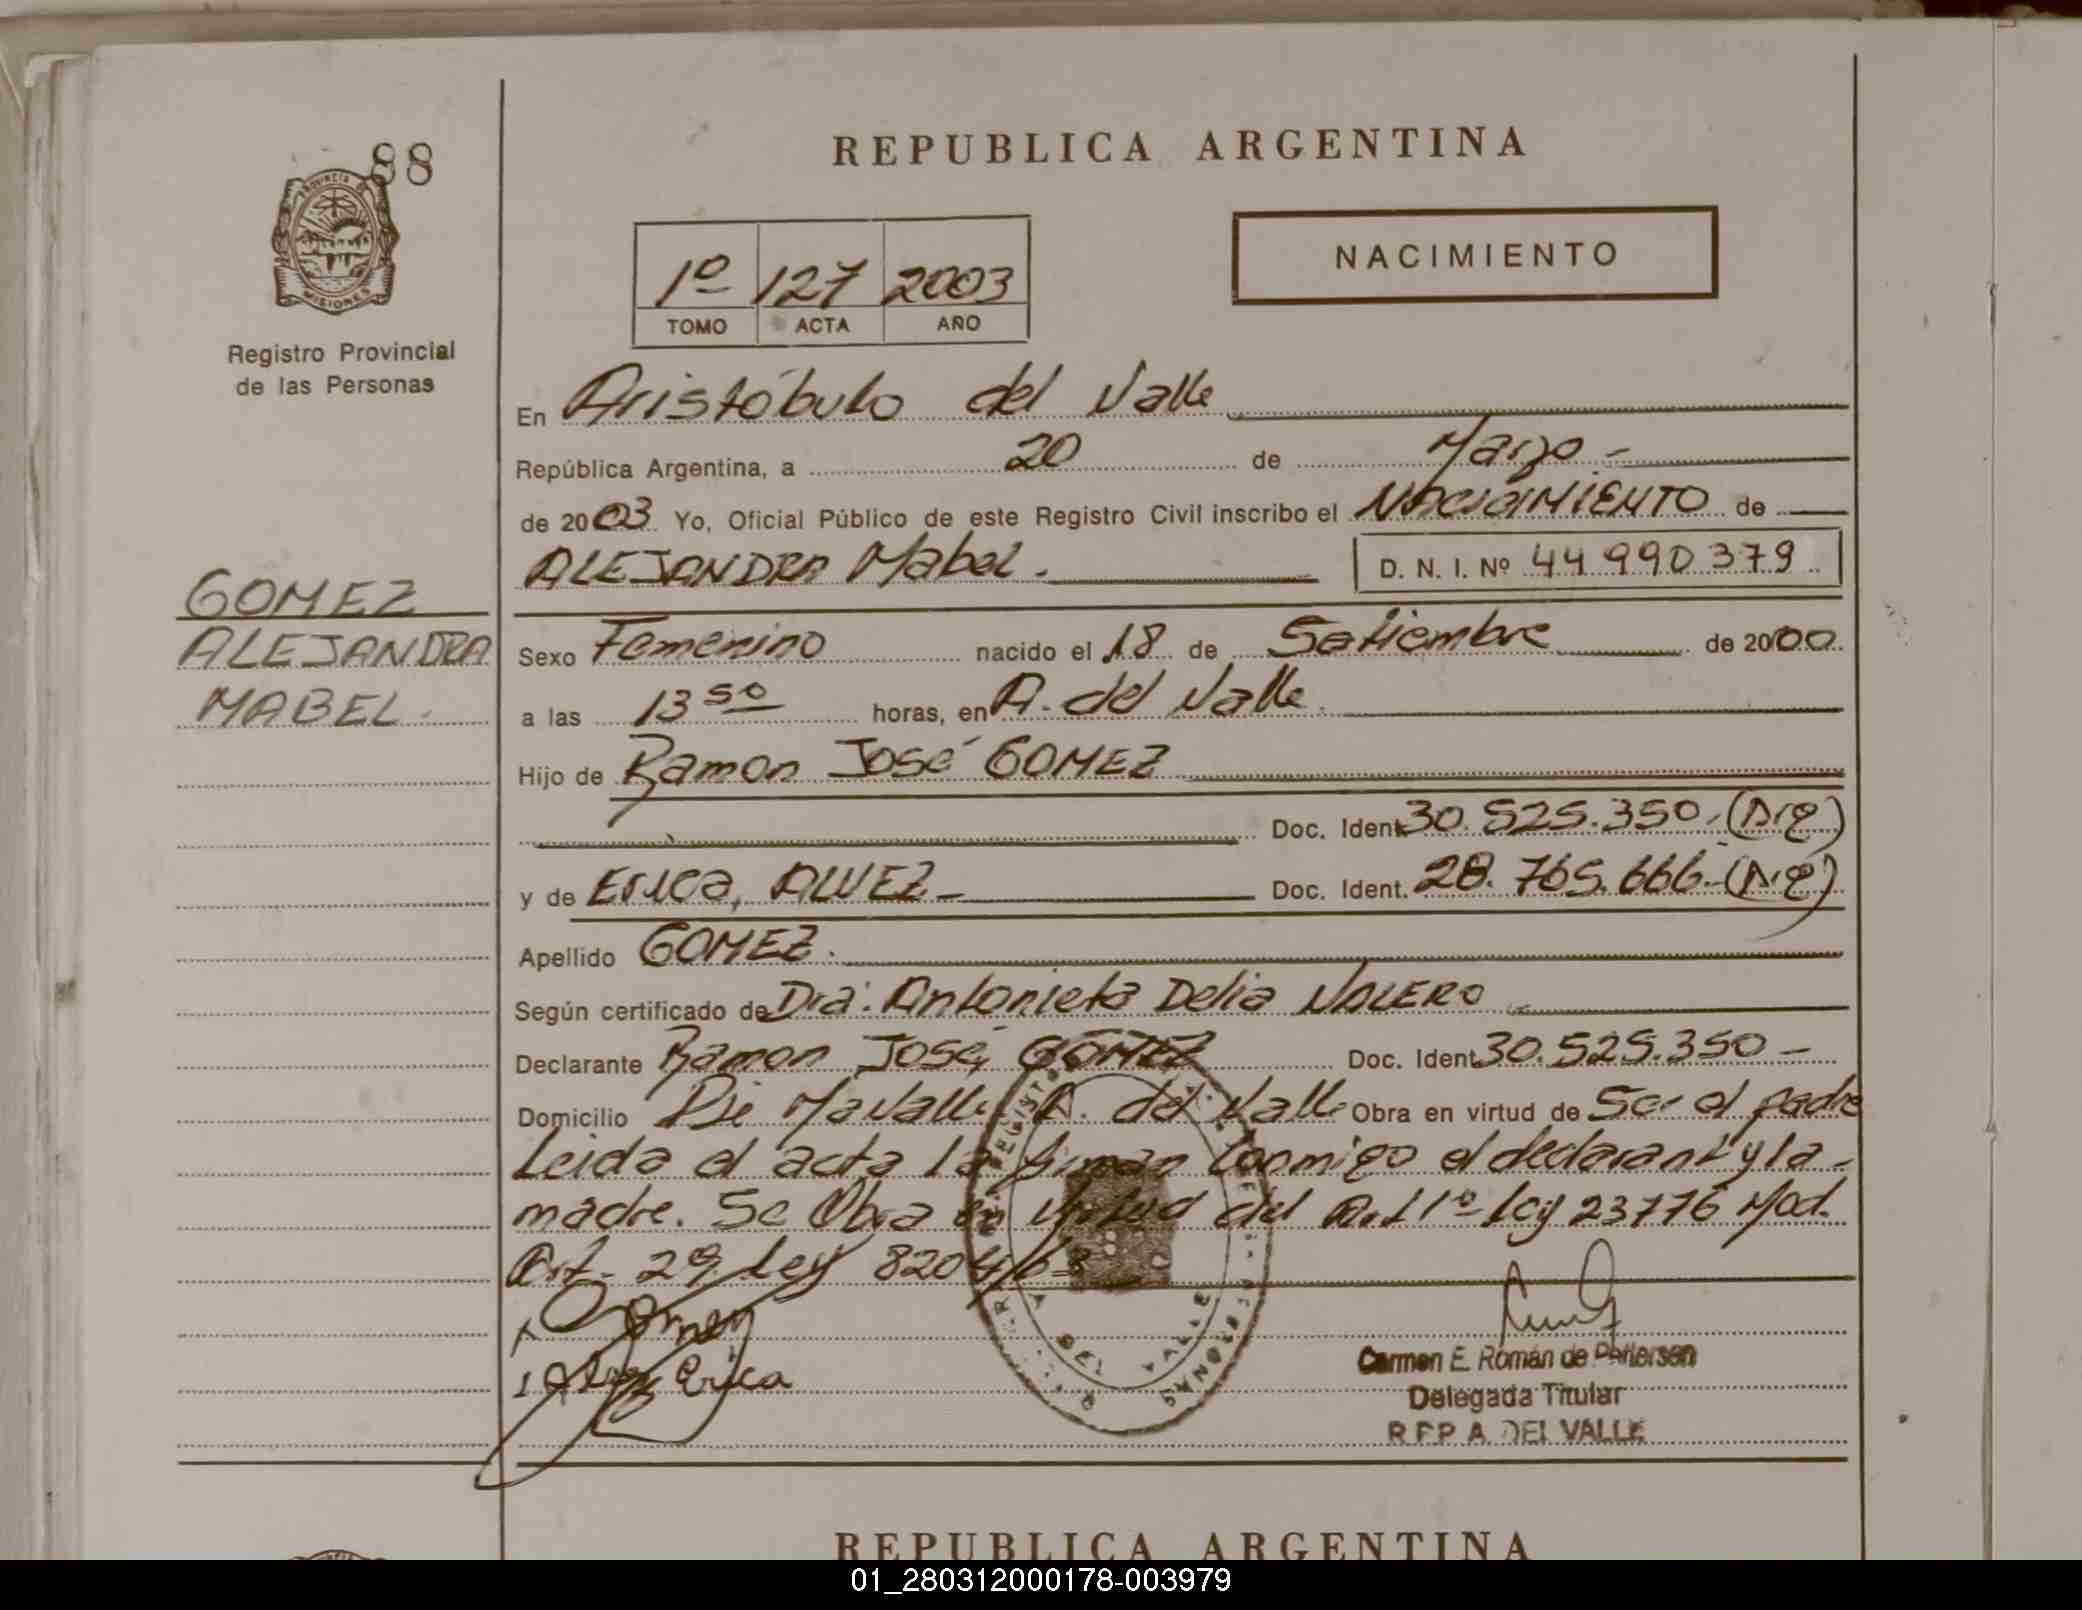 88
PROVINCIA DE
MISIONES
Registro Provincial
de las Personas
REPUBLICA ARGENTINA
1º 127 2003
TOMO ACTA AÑO
NACIMIENTO
En Aristóbulo del Valle
República Argentina, a 20 de Marzo
de 2003 Yo, Oficial Público de este Registro Civil inscribo el NACIMIENTO de
ALEJANDRA Mabel. D. N. I. Nº 44 990 379
GOMEZ
ALEJANDRA
MABEL.
Sexo Femenino nacido el 18 de Setiembre de 2000
a las 13 50 horas, en A. del Valle.
Hijo de Ramon José GOMEZ
Doc. Ident. 30.525.350. (Arg)
y de Erica, ALVEZ Doc. Ident. 28.765.666. (Arg)
Apellido GOMEZ.
Según certificado de Dra. Antonieta Delia VALERO
Declarante Ramon José, GOMEZ Doc. Ident 30.525.350
Domicilio A. del Valle Obra en virtud de Ser el padre
Leida el acta la firman conmigo el declarante y la
madre. Se Obra en virtud del Art 1º ley 23776 Mod.
Art. 29. Ley 8204/63
Erica
Carmen E. Román de Pettersen
Delegada Titular
R.P.P. A. DEL VALLE
REPUBLICA ARGENTINA
01_280312000178-003979